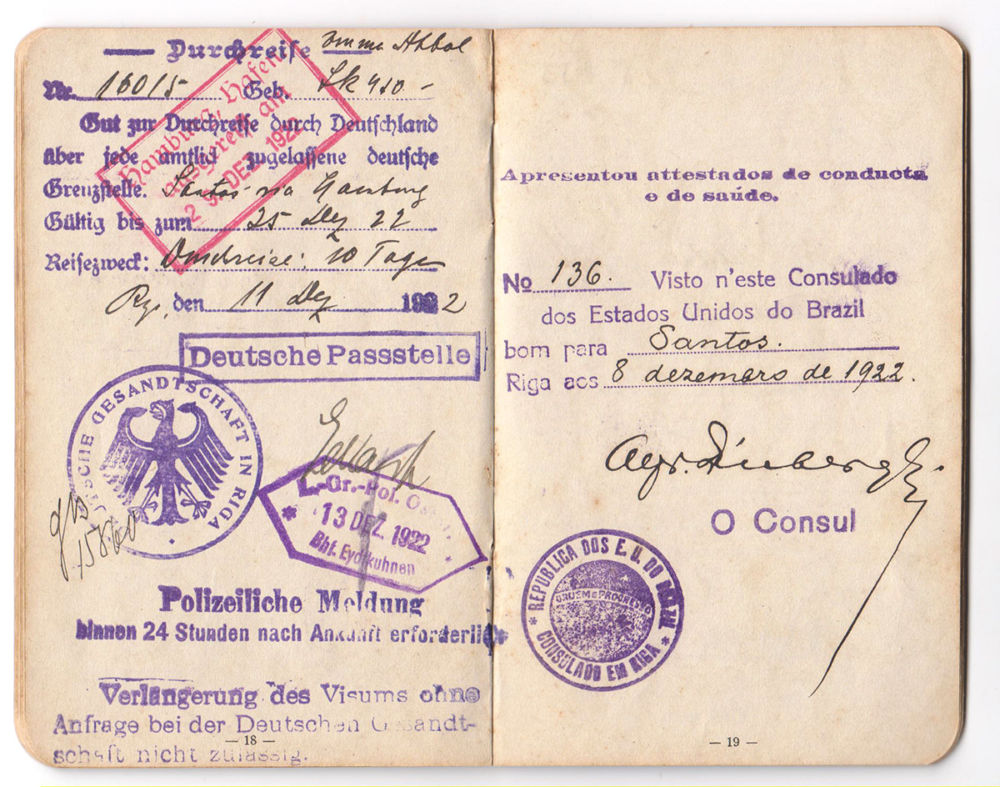 Durchreise
Nr. 16015 Geb.
Gut zur Durchreise durch Deutschland
über jede amtlich zugelassene deutsche
Grenzstelle. Santos via Hamburg
Gültig bis zum 25 Dez 22
Reisezweck: Durchreise: 10 Tage
Riga, den 11 Dez 1922
Hamburg, Hafen
DEZ. 1922
Deutsche Passstelle
DEUTSCHE GESANDTSCHAFT IN RIGA
Gr.-Pol.
13 DEZ. 1922
Bhf. Eydtkuhnen
Polizeiliche Meldung
binnen 24 Stunden nach Ankunft erforderlich
Verlängerung des Visums ohne
Anfrage bei der Deutschen Gesandt-
schaft nicht zulässig.
— 18 —
Apresentou attestados de conducta
e de saúde.
No 136. Visto n'este Consulado
dos Estados Unidos do Brazil
bom para Santos.
Riga aos 8 dezembro de 1922.
O Consul
REPUBLICA DOS E. U. DO BRAZIL
ORDEM E PROGRESSO
CONSULADO EM RIGA
— 19 —